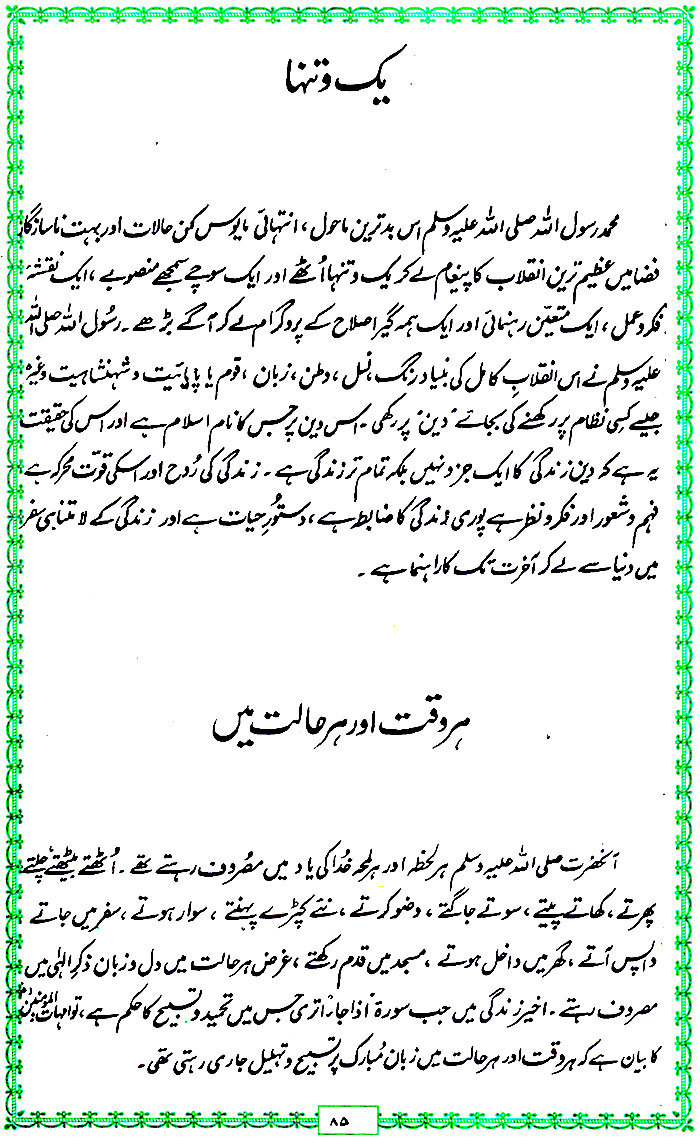 یک و تنہا
محمد رسول اللہ صلی اللہ علیہ وسلم اس بدترین ماحول، انتہائی مایوس کن حالات اور بہت ناسازگار
فضا میں عظیم ترین انقلاب کا پیغام لے کر یک و تنہا اُٹھے اور ایک سوچے سمجھے منصوبے، ایک نقشۂ
فکر و عمل، ایک متعیّن رہنمائی اور ایک ہمہ گیر اصلاح کے پروگرام لے کر آگے بڑھے۔ رسُول اللہ صلی اللہ
علیہ وسلم نے اس انقلابِ کامل کی بنیاد رنگ، نسل، وطن، زبان، قوم یا پاپائیت و شہنشاہیت وغیرہ
جیسے کسی نظام پر رکھنے کی بجائے "دین" پر رکھی۔ اس دین پر جس کا نام اسلام ہے اور اس کی حقیقت
یہ ہے کہ دین زندگی کا ایک جزو نہیں بلکہ تمام تر زندگی ہے۔ زندگی کی رُوح اور اسکی قوّت محرکہ ہے
فہم و شعور اور فکر و نظر ہے پوری زندگی کا ضابطہ ہے، دستُورِ حیات ہے اور زندگی کے لامتناہی سفر
میں دنیا سے لے کر آخرت تک کا راہنما ہے۔
ہر وقت اور ہر حالت میں
آنحضرت صلی اللہ علیہ وسلم ہر لحظہ اور ہر لمحہ خُدا کی یاد میں مصُروف رہتے تھے۔ اُٹھتے بیٹھتے، چلتے
پھرتے، کھاتے پیتے، سوتے جاگتے، وضو کرتے، نئے کپڑے پہنتے، سوار ہوتے، سفر میں جاتے
واپس آتے، گھر میں داخل ہوتے، مسجد میں قدم رکھتے، غرض ہر حالت میں دل و زبان ذکرِ الٰہی میں
مصروف رہتے۔ اخیر زندگی میں جب سورۃ اذا جاء اتری جس میں تحمید و تسبیح کا حکم ہے، تو امہات المؤمنین
کا بیان ہے کہ ہر وقت اور ہر حالت میں زبان مُبارک پر تسبیح و تہلیل جاری رہتی تھی۔
۸۵